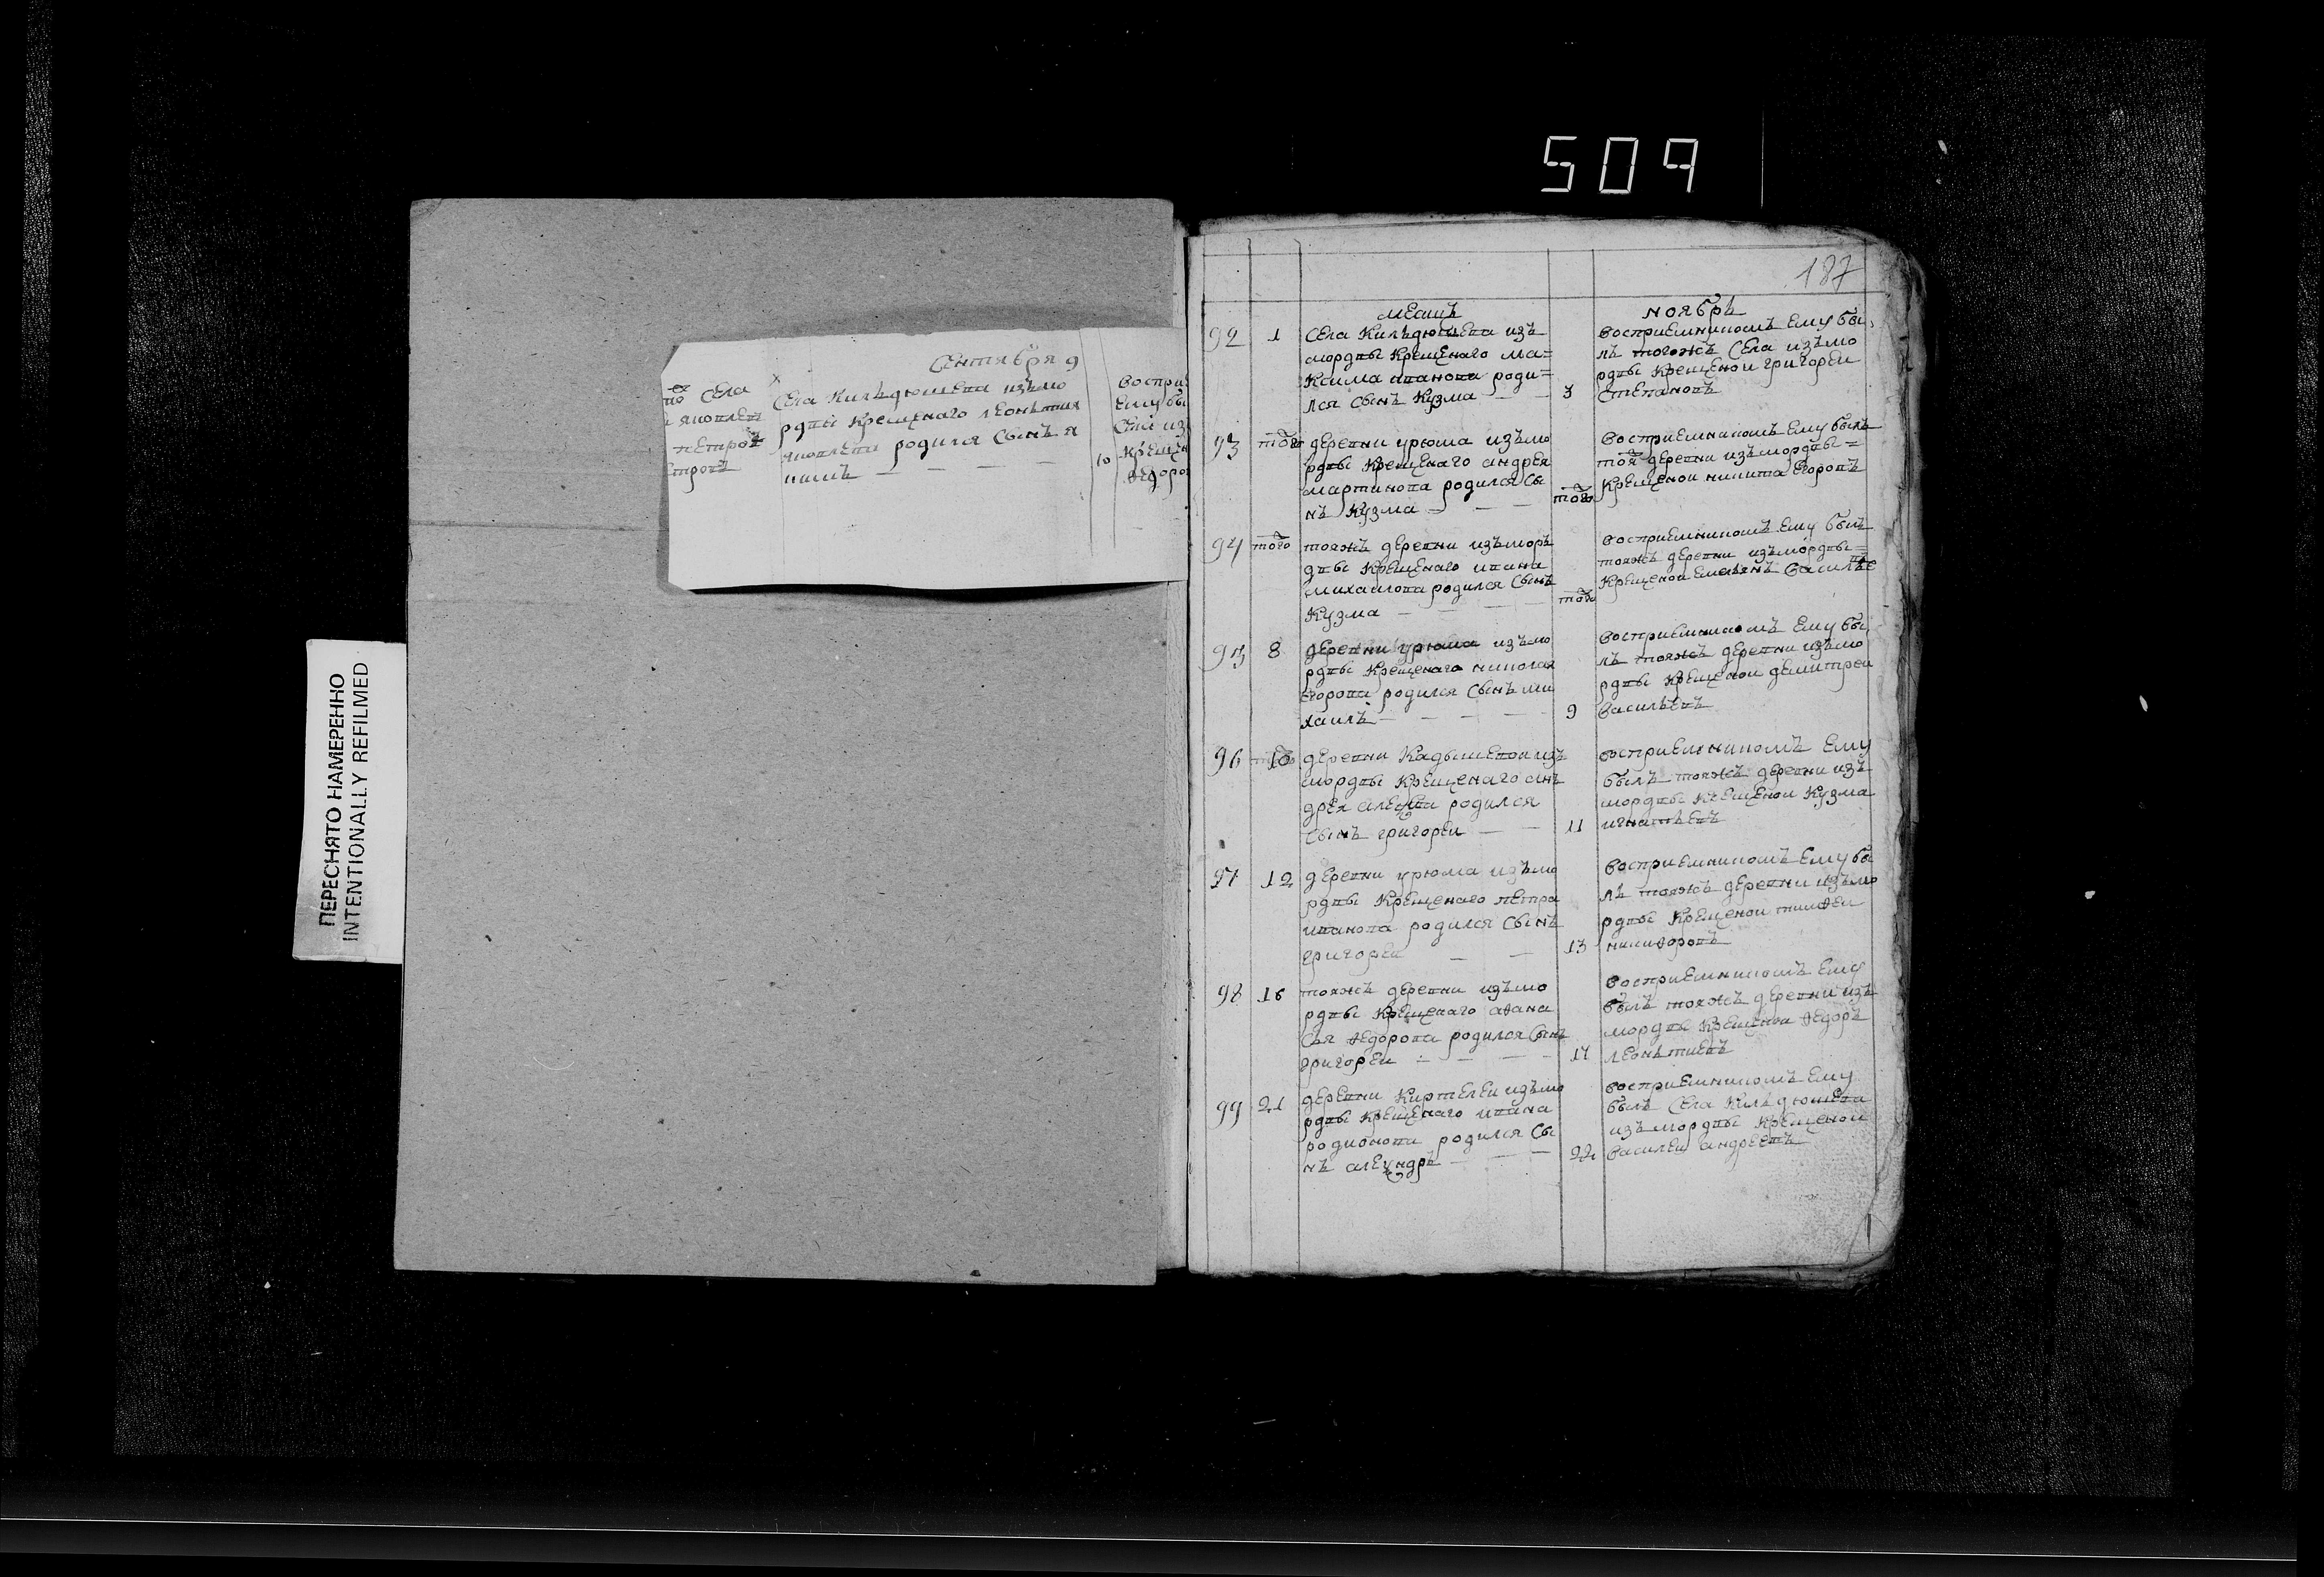 509
ПЕРЕСНЯТО НАМЕРЕННО
INTENTIONALLY REFILMED
Сентября 9
Села
Села Килдюшева изъмо
рдвы крещенаго леонътия
яковлева родился сынъ я
кимъ
10
Воспри
Ему бы
крещен
федоро
петровъ
187
месяцъ
ноябрь
92 1 Села Килъдюшева изъ
мордвы крещенаго ма=
ксима иванова роди=
лся сынъ Кузма 3
восприемникомъ ему бы
лъ тогожъ села изъмо
рдвы крещеной григореи
степановъ
93 того деревни урюма изъмо
рдвы крещенаго андрея
мартинова родился сы
нъ Кузма того
восприемникомъ ему былъ
тоя деревни изъмордвы=
крещеной никита егоровъ
94 того тояжъ деревни изъморъ
двы крещенаго ивана
михаилова родился сынъ
Кузма того
восприемникомъ ему былъ
тояжъ деревни изъмордвы=
крещеной емельянъ василъевъ
95 8 деревни урюма изъмо
рдвы крещенаго николая
егорова родился сынъ ми
хаилъ 9
восприемникомъ ему бы
лъ тояжъ деревни изъмо
рдвы крещеной демитреи
василъевъ
96 10 деревни Кадышевои изъ
мордвы крещенаго анъ
дрея родился
сынъ григореи 11
восприемникомъ ему
былъ тояжъ деревни изъ
мордвы крещеной Кузма
игнатьевъ
97 12 деревни урюма изъмо
рдвы крещенаго петра
иванова родился сынъ
григореи 13
восприемникомъ ему бы
лъ тояжъ деревни изъмо
рдвы крещеной тимофеи
никифоровъ
98 16 тояжъ деревни изъмо
рдвы крещенаго афана
сья федорова родился сынъ
григореи 17
восприемникомъ ему
былъ тояжъ деревни изъ
мордвы крещеной федоръ
леонътиевъ
99 21 деревни Киртелеи изъмо
рдвы крещенаго ивана
родионова родился сы
нъ алеѯндръ 22
восприемникомъ ему
былъ села Килъдюшева
изъ мордвы крещеной
василеи андреевъ